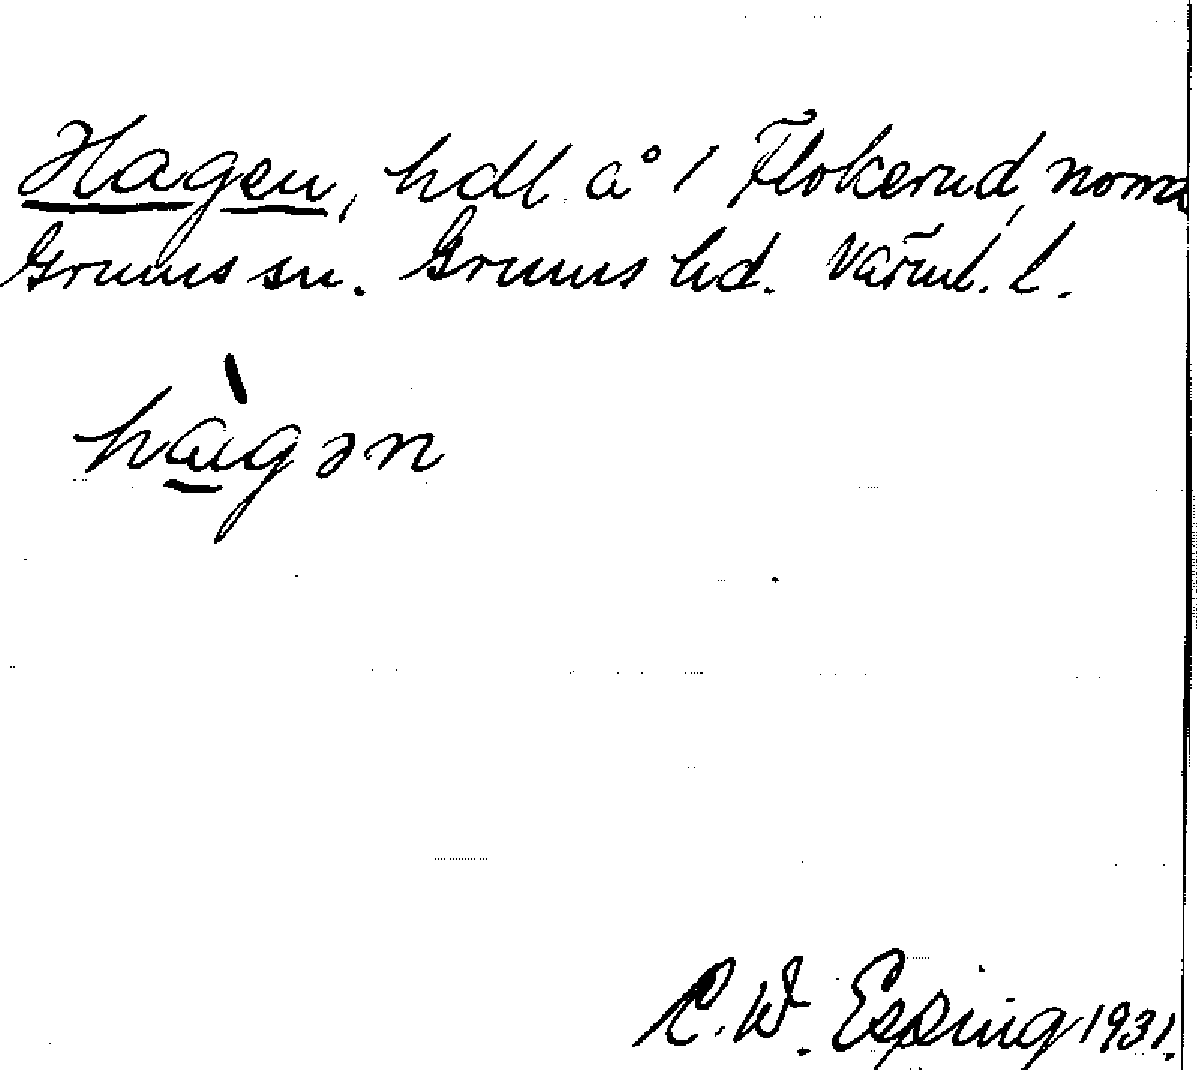 Hagen, hdl. å 1 Flokerud, norra
Grums sn. Grums hd. Värml. l.
hàgən
C. W. Esping 1931.